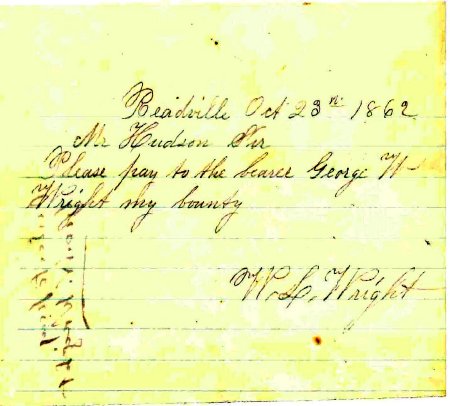 Readville Oct 23rd 1862
Mr Hudson Sir
Please pay to the bearer George W
Wright my bounty
W. L. Wright